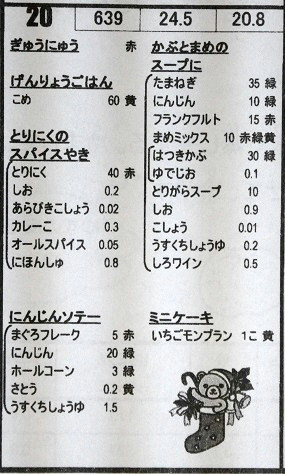 20 639 24.5 20.8
ぎゅうにゅう 赤
げんりょうごはん
こめ 60 黄
とりにくの
スパイスやき
とりにく 40 赤
しお 0.2
あらびきこしょう 0.02
カレーこ 0.3
オールスパイス 0.05
にほんしゅ 0.8
にんじんソテー
まぐろフレーク 5 赤
にんじん 20 緑
ホールコーン 3 緑
さとう 0.2 黄
うすくちしょうゆ 1.5
かぶとまめの
スープに
たまねぎ 35 緑
にんじん 10 緑
フランクフルト 15 赤
まめミックス 10 赤緑黄
はつきかぶ 30 緑
ゆでじお 0.1
とりがらスープ 10
しお 0.9
こしょう 0.01
うすくちしょうゆ 0.2
しろワイン 0.5
ミニケーキ
いちごモンブラン 1こ 黄